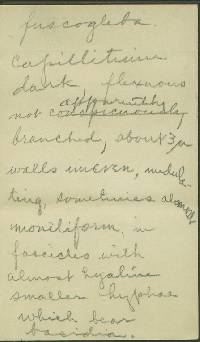 fuscogleba.
capillitium
dark flexuous
apparently
not conspicuously
branched, about 3 µ
walls uneven, undula-
ting, sometimes almost
moniliform, in
fascicles with
almost hyaline
smaller hyphae
which bear
basidia.